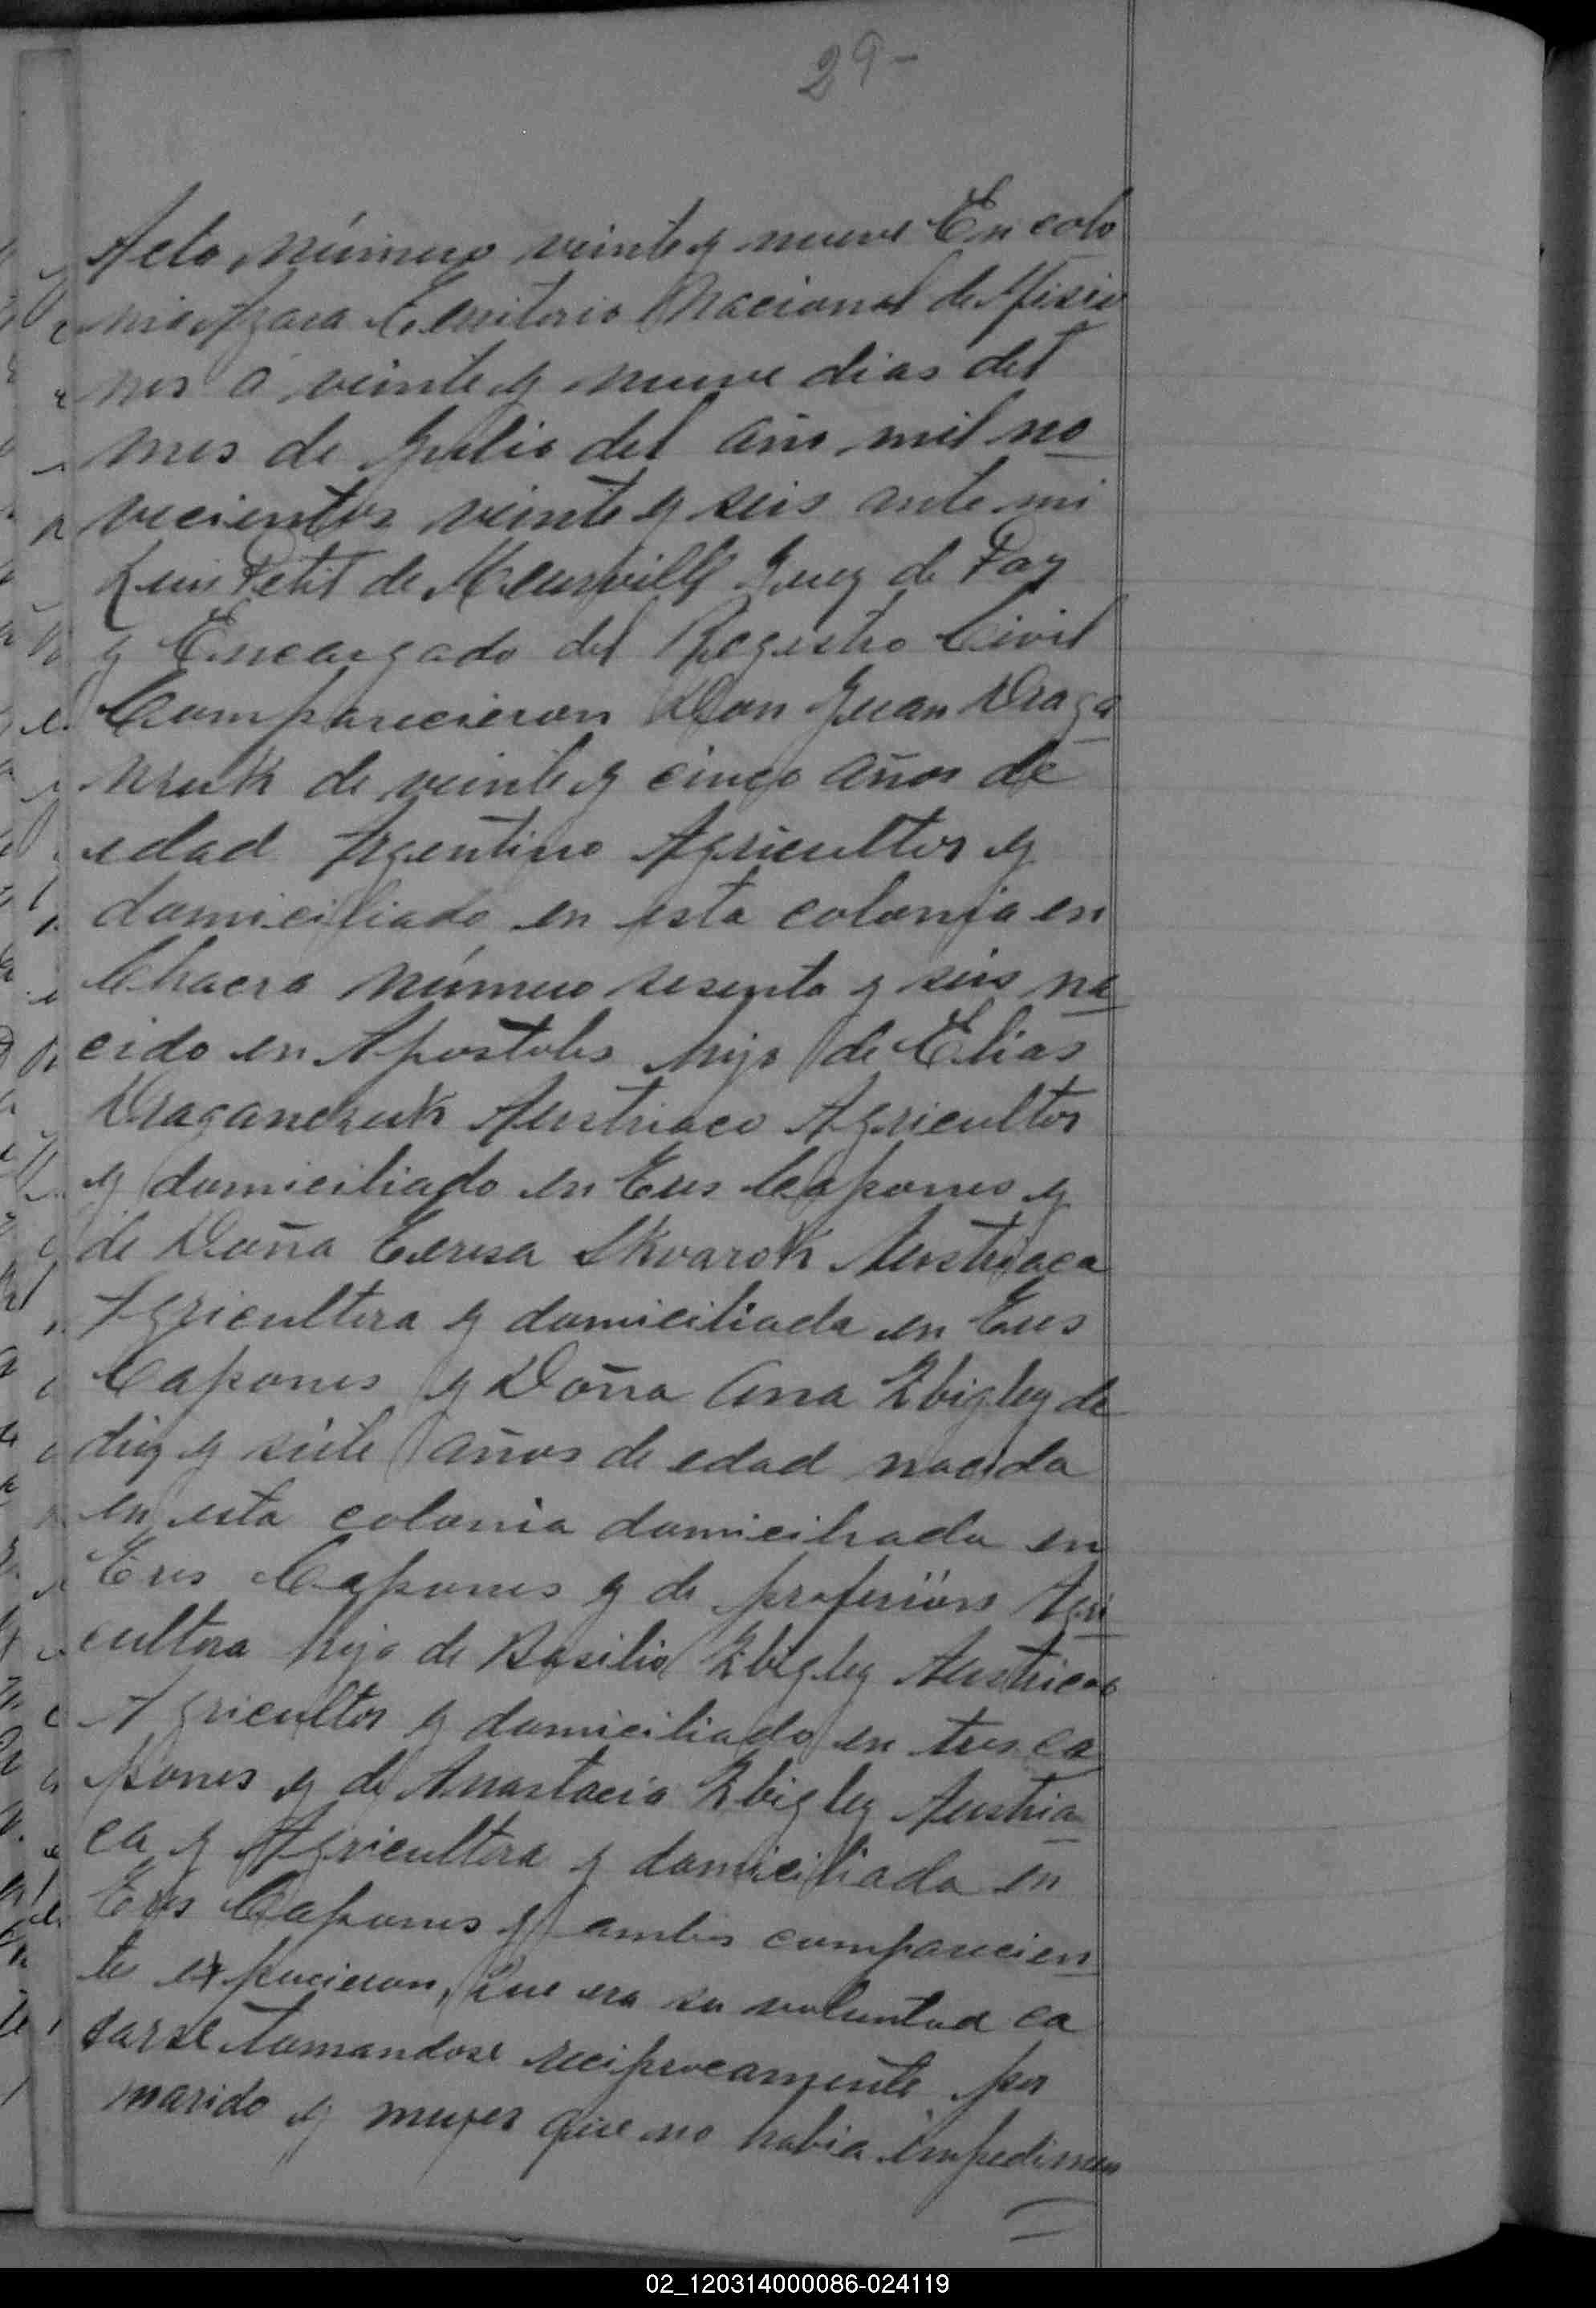 29-
Acta número veinte y nueve En colo
nia Azara Territorio Nacional de Misio
nes á veinte y nueve dias del
mes de Julio del año mil no
vecientos veinte y seis ante mi
Luis Petit de Meurville Juez de Paz
y Encargado del Registro Civil
Comparecieron Don Juan Draga
nczuk de veinte y cinco años de
edad Argentino Agricultor y
domiciliado en esta colonia en
Chacra número sesenta y seis na
cido en Apostoles hijo de Elias
Draganczuk Austriaco Agricultor
y domiciliado en Tres Capones y
de Doña Teresa Skvarok Austriaca
Agricultora y domiciliada en Tres
Capones y Doña Ana Zbigley de
diez y siete años de edad nacida
en esta colonia domiciliada en
Tres Capones y de profesión Agri
cultora hija de Basilio Zbigley Austriaco
Agricultor y domiciliado en tres ca
pones y de Anastacia Zbigley Austria
ca y Agricultora y domiciliada en
Tres Capones y ambos comparecien
te expucieron, Que era su voluntad ca
sarse tomandose reciprocamente por
marido y mujer que no habia impedimen
02_120314000086-024119